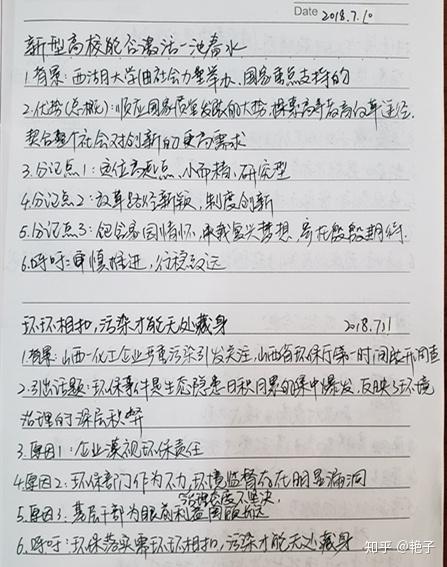 Date 2018.7.10
新型高校能否激活一池春水
1.背景:西湖大学由社会力量举办、国家重点支持的
2.优势(总概):顺应国家质量发展的大势,探索高等教育改革途径,
契合整个社会对创新的更高需求
3.分论点1:定位高起点、小而精、研究型
4.分论点2:改革路径新颖,制度创新
5.分论点3:包含家国情怀,承载复兴梦想,寄托殷殷期待.
6.呼吁:审慎推进,行稳致远
环环相扣,污染才能无处藏身 2018.7.11
1.背景:山西一化工企业严重污染引发关注,山西省环保厅第一时间展开调查
2.引出话题:环保事件是生态隐患日积月累的集中爆发,反映了环境
治理的深层积弊
3.原因1:企业漠视环保责任
4.原因2:环保部门作为不力,环境监督存在明显漏洞
治理态度不坚决
5.原因3:基层干部为眼前利益
6.呼吁:环保落实需环环相扣,污染才能无处藏身
知乎 @艳子